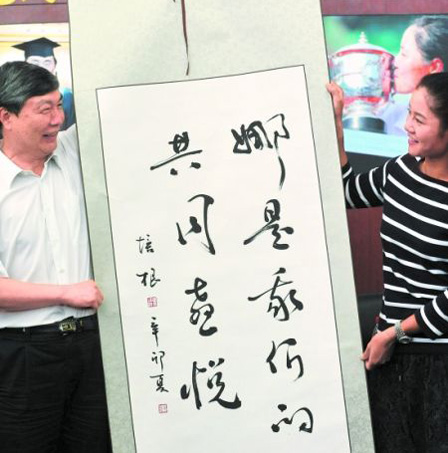 娜是我们的
共同喜悦
培根
辛卯夏